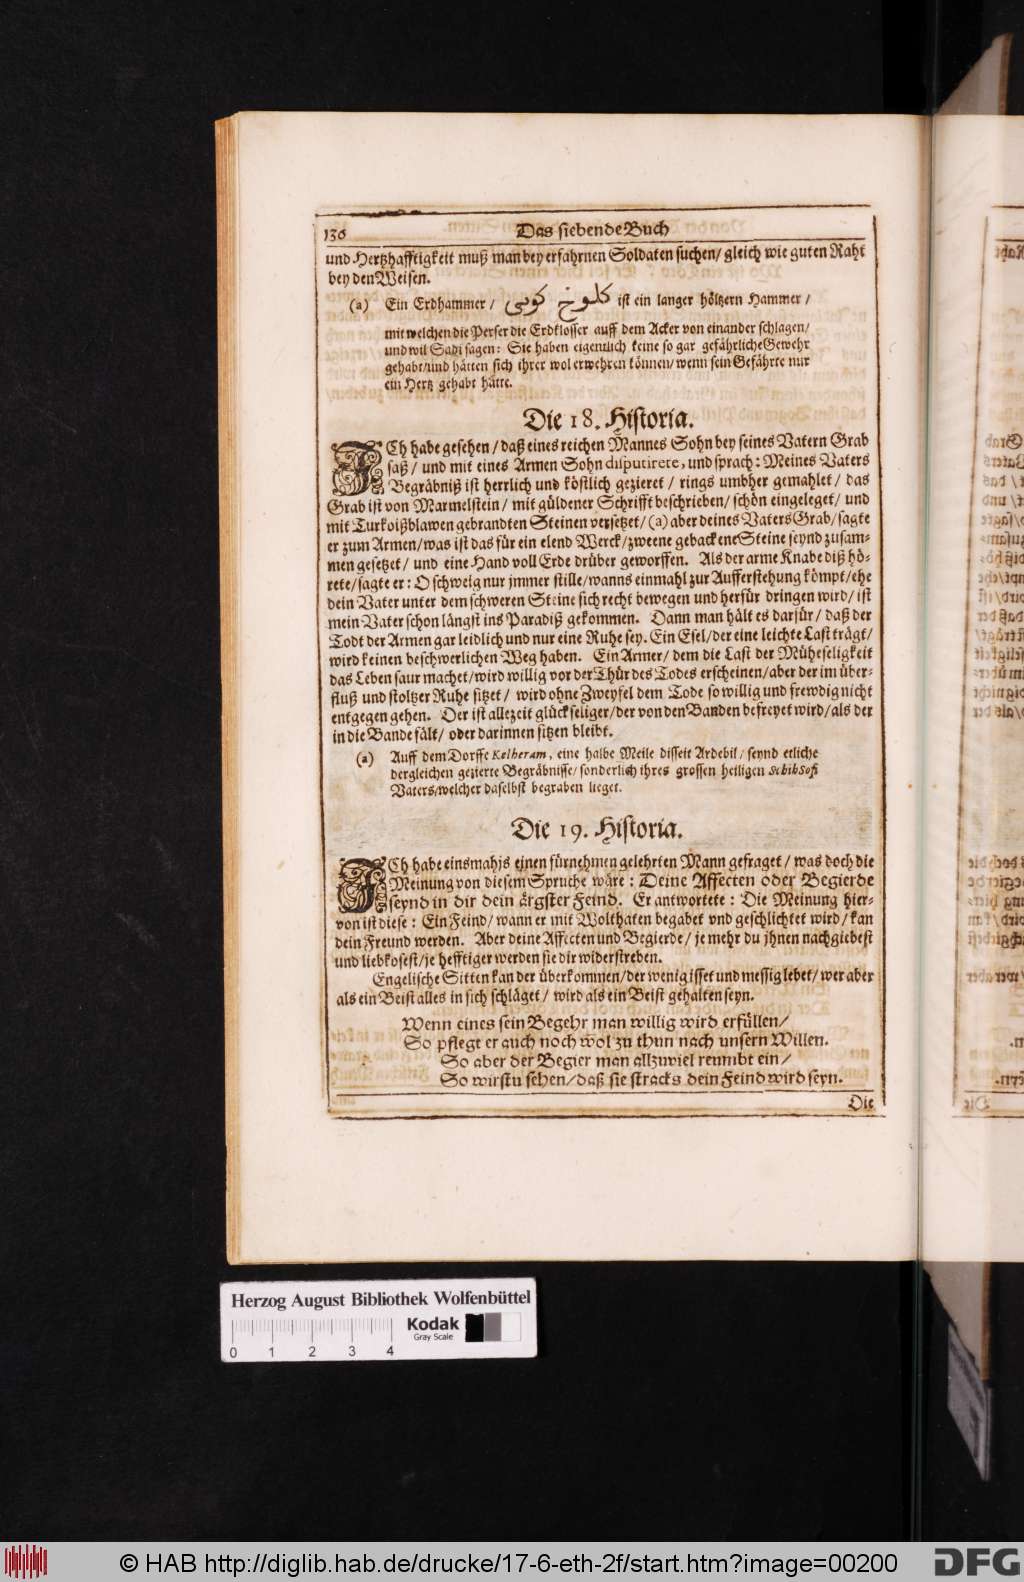 136 Das siebende Buch
und Hertzhafftigkeit muß man bey erfahrnen Soldaten suchen/ gleich wie guten Raht
bey den Weisen.
(a) Ein Erdhammer / کلوخ کوبی ist ein langer höltzern Hammer /
mit welchen die Perser die Erdklosser auff dem Acker von einander schlagen/
und wil Sadi sagen: Sie haben eigentlich keine so gar gefährliche Gewehr
gehabt/und hätten sich ihrer wol erwehren können/ wenn sein Gefährte nur
ein Hertz gehabt hätte.
Die 18. Historia.
ICh habe gesehen / daß eines reichen Mannes Sohn bey seines Vatern Grab
saß / und mit eines Armen Sohn disputirete, und sprach: Meines Vaters
Begräbniß ist herrlich und köstlich gezieret / rings umbher gemahlet / das
Grab ist von Marmelstein / mit güldener Schrifft beschrieben/ schön eingeleget/ und
mit Turkoißblawen gebrandten Steinen versetzet/ (a) aber deines Vaters Grab/ sagte
er zum Armen/was ist das für ein elend Werck/zweene gebackene Steine seynd zusam-
men gesetzet / und eine Hand voll Erde drüber geworffen. Als der arme Knabe diß hö-
rete/sagte er: O schweig nur jmmer stille/wanns einmahl zur Aufferstehung kömpt/ehe
dein Vater unter dem schweren Steine sich recht bewegen und herfür dringen wird/ ist
mein Vater schon längst ins Paradiß gekommen. Dann man hält es darfür/ daß der
Todt der Armen gar leidlich und nur eine Ruhe sey. Ein Esel/der eine leichte Last trägt/
wird keinen beschwerlichen Weg haben. Ein Armer/ dem die Last der Müheseligkeit
das Leben saur machet/wird willig vor der Thür des Todes erscheinen/aber der im über-
fluß und stoltzer Ruhe sitzet / wird ohne Zweyfel dem Tode so willig und frewdig nicht
entgegen gehen. Der ist allezeit glückseliger/der von den Banden befreyet wird/ als der
in die Bande fält/ oder darinnen sitzen bleibt.
(a) Auff dem Dorffe Kelheram, eine halbe Meile disseit Ardebil/ seynd etliche
dergleichen gezierte Begräbnisse/ sonderlich ihres grossen heiligen Schih Sofi
Vaters/welcher daselbst begraben lieget.
Die 19. Historia.
ICh habe einsmahls einen fürnehmen gelehrten Mann gefraget / was doch die
Meinung von diesem Spruche wäre: Deine Affecten oder Begierde
seynd in dir dein ärgster Feind. Er antwortete: Die Meinung hier-
von ist diese: Ein Feind/ wann er mit Wolthaten begabet und geschlichtet wird/ kan
dein Freund werden. Aber deine Affecten und Begierde/ je mehr du jhnen nachgiebest
und liebkosest/je hefftiger werden sie dir widerstreben.
Engelische Sitten kan der überkommen/der wenig isset und messig lebet/ wer aber
als ein Beist alles in sich schläget/ wird als ein Beist gehalten seyn.
Wenn eines sein Begehr man willig wird erfüllen/
So pflegt er auch noch wol zu thun nach unsern Willen.
So aber der Begier man allzuviel reumbt ein/
So wirstu sehen/daß sie stracks dein Feind wird seyn.
Die
Herzog August Bibliothek Wolfenbüttel
Kodak
Gray Scale
0 1 2 3 4
© HAB http://diglib.hab.de/drucke/17-6-eth-2f/start.htm?image=00200
DFG